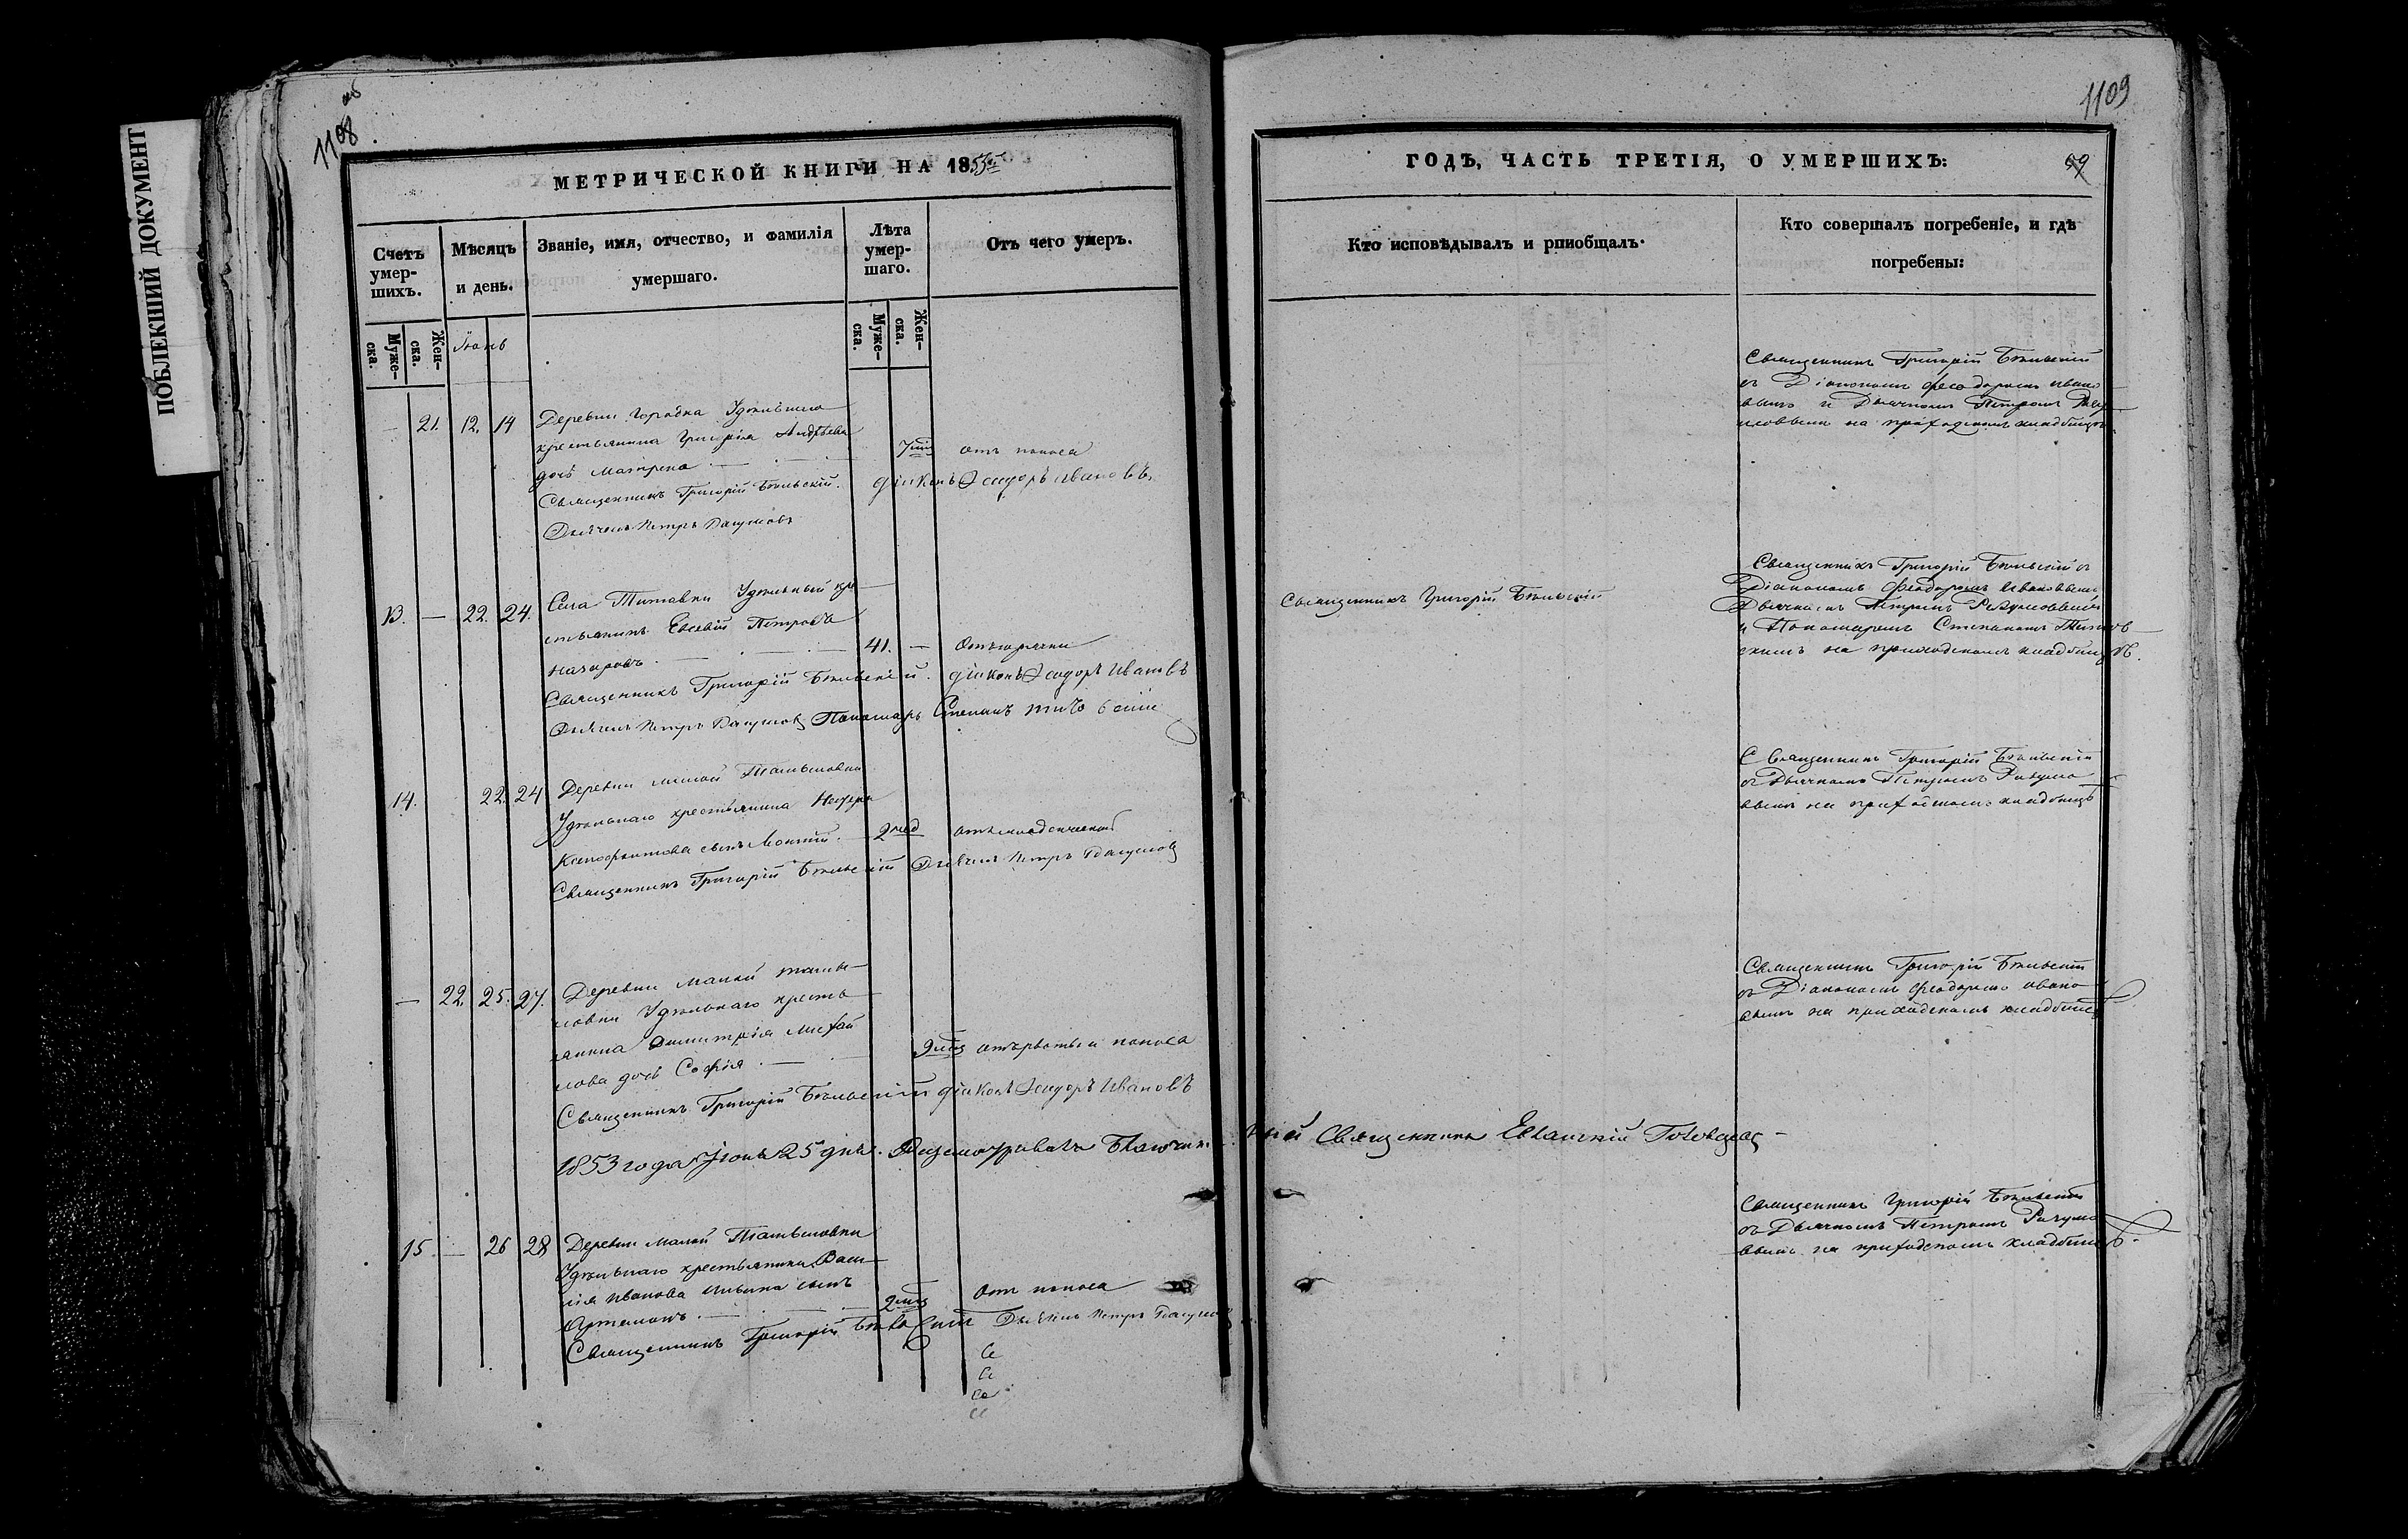 ПОБЛЕКШИЙ ДОКУМЕНТ
1108 об
МЕТРИЧЕСКОЙ КНИГИ НА 1853й
Счетъ умер-шихъ.
Мѣсяцъ и день.
Званіе, имя, отчество, и фамилія умершаго.
Лѣта умер-шаго.
Отъ чего умеръ.
Муже-ска.
Жен-ска.
Іюнь
Муже-ска.
Жен-ска.
— 21. 12. 14 Деревни Городка Удѣльнаго
крестьянина Григорія Андрѣева
дочь Матрена 7 отъ поноса
Священникъ Григорій Бѣльскій. Діяконъ Ѳеодоръ Ивановъ
Дьячекъ Петръ Разумовъ
13. — 22. 24. Села Титовки Удѣльный кре
стьянинъ Евсевій Петровъ
Назаровъ. 41. — Отъ горячки
Священникъ Григорій Бѣльскій. Діяконъ Ѳеодоръ Ивановъ
Дьячекъ Петръ Разумовъ Пономарь Степанъ
14. 22. 24 Деревни малой
Удѣльнаго крестьянина
Ксенофонтова сынъ 2 нед отъ младенческой
Священникъ Григорій Бѣльскій Дьячекъ Петръ Разумовъ
— 22. 25. 27. Деревни малой
Удѣльнаго кресть
янина Димитрія Михай
лова дочь Софія 9 отъ рвоты и поноса
Священникъ Григорій Бѣльскій Діяконъ Ѳеодоръ Ивановъ
1853 года Іюня 25 дня. Разсматривалъ Благочинный Священникъ
15. — 26 28 Деревни Малой
Удѣльнаго крестьянина Васи
лія Иванова Ильина сынъ
Артемонъ. 2 Отъ поноса
Священникъ Григорій Бѣльскій Дьячекъ Петръ Разумовъ
1109
ГОДЪ, ЧАСТЬ ТРЕТІЯ, О УМЕРШИХЪ:
69
Кто исповѣдывалъ и рпиобщалъ.
Кто совершалъ погребеніе, и гдѣ погребены:
Священникъ Григорій Бѣльскій
съ Діакономъ Феодоромъ Ивано
вымъ и Дьячкомъ Петромъ Разу
мовымъ на приходскомъ кладбищѣ
Священникъ Григорій Бѣльскій
Священникъ Григорій Бѣльскій съ
Діакономъ Феодоромъ Ивановымъ
Дьячкомъ Петромъ Разумовымъ
и Пономаремъ Степаномъ
на приходскомъ кладбищѣ.
Священникъ Григорій Бѣльскій
съ Дьячкомъ Петромъ Разумо
вымъ на приходскомъ кладбищѣ
Священникъ Григорій Бѣльскій
съ Діакономъ Феодоромъ Ивано
вымъ на приходскомъ кладбищѣ
Священникъ Григорій Бѣльскій
съ Дьячкомъ Петромъ Разумо
вымъ на приходскомъ кладбищѣ.